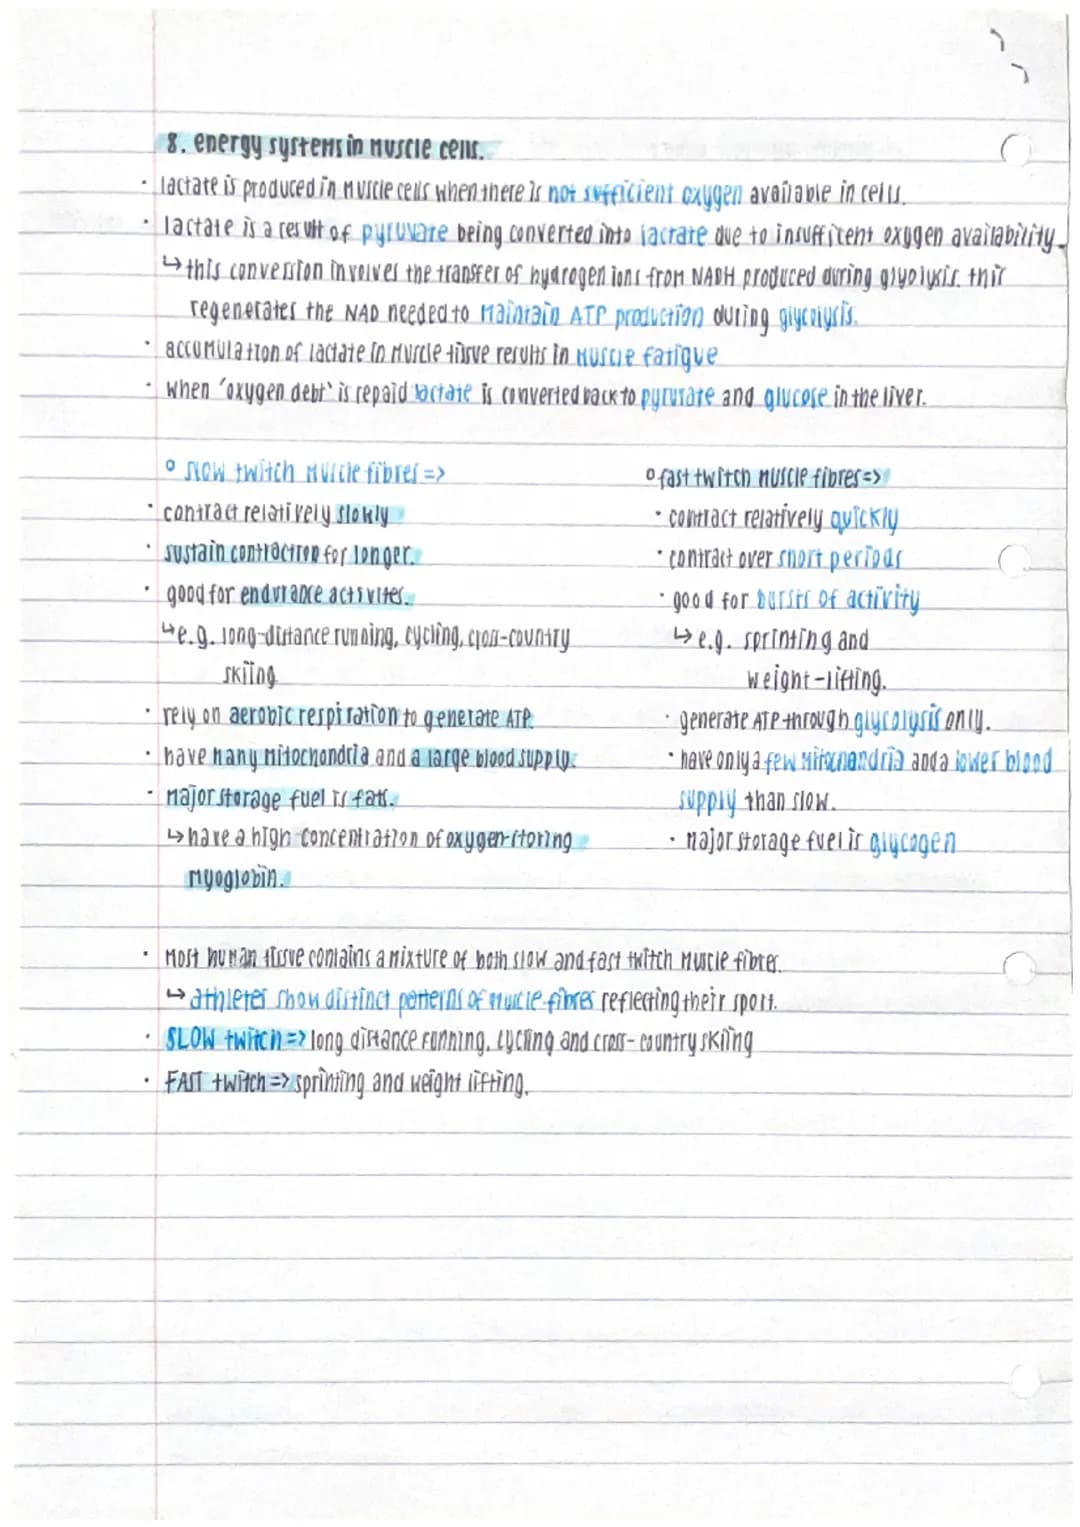 8. energy systems in muscle cells.
· lactate is produced in muscle cells when there is not sufficient oxygen available in cells.
· lactate is a result of pyruvate being converted into lactate due to insufficent oxygen availability.
↳ this conversion involves the transfer of hydrogen ions from NADH produced during glyolysis. this
regenerates the NAD needed to maintain ATP production during glycolysis.
· accumulation of lactate in muscle tissue results in muscle fatigue
· when 'oxygen debt' is repaid lactate is converted back to pyruvate and glucose in the liver.
° slow twitch muscle fibres =>
· contract relatively slowly
· sustain contraction for longer.
· good for endurance activites.
↳ e.g. long-distance running, cycling, cross-country
skiing
· rely on aerobic respiration to generate ATP.
· have many mitochondria and a large blood supply.
· major storage fuel is fats.
↳ have a high concentration of oxygen-storing
myoglobin.
° fast twitch muscle fibres =>
· contract relatively quickly
· contract over short periods
· good for bursts of activity
↳ e.g. sprinting and
weight-lifting.
· generate ATP through glycolysis only.
· have only a few mitochondria and a lower blood
supply than slow.
· major storage fuel is glycogen
· Most human tissue contains a mixture of both slow and fast twitch muscle fibres.
↳ athletes show distinct patterns of muscle fibres reflecting their sport.
· SLOW twitch => long distance running, cycling and cross-country skiing
· FAST twitch => sprinting and weight lifting.